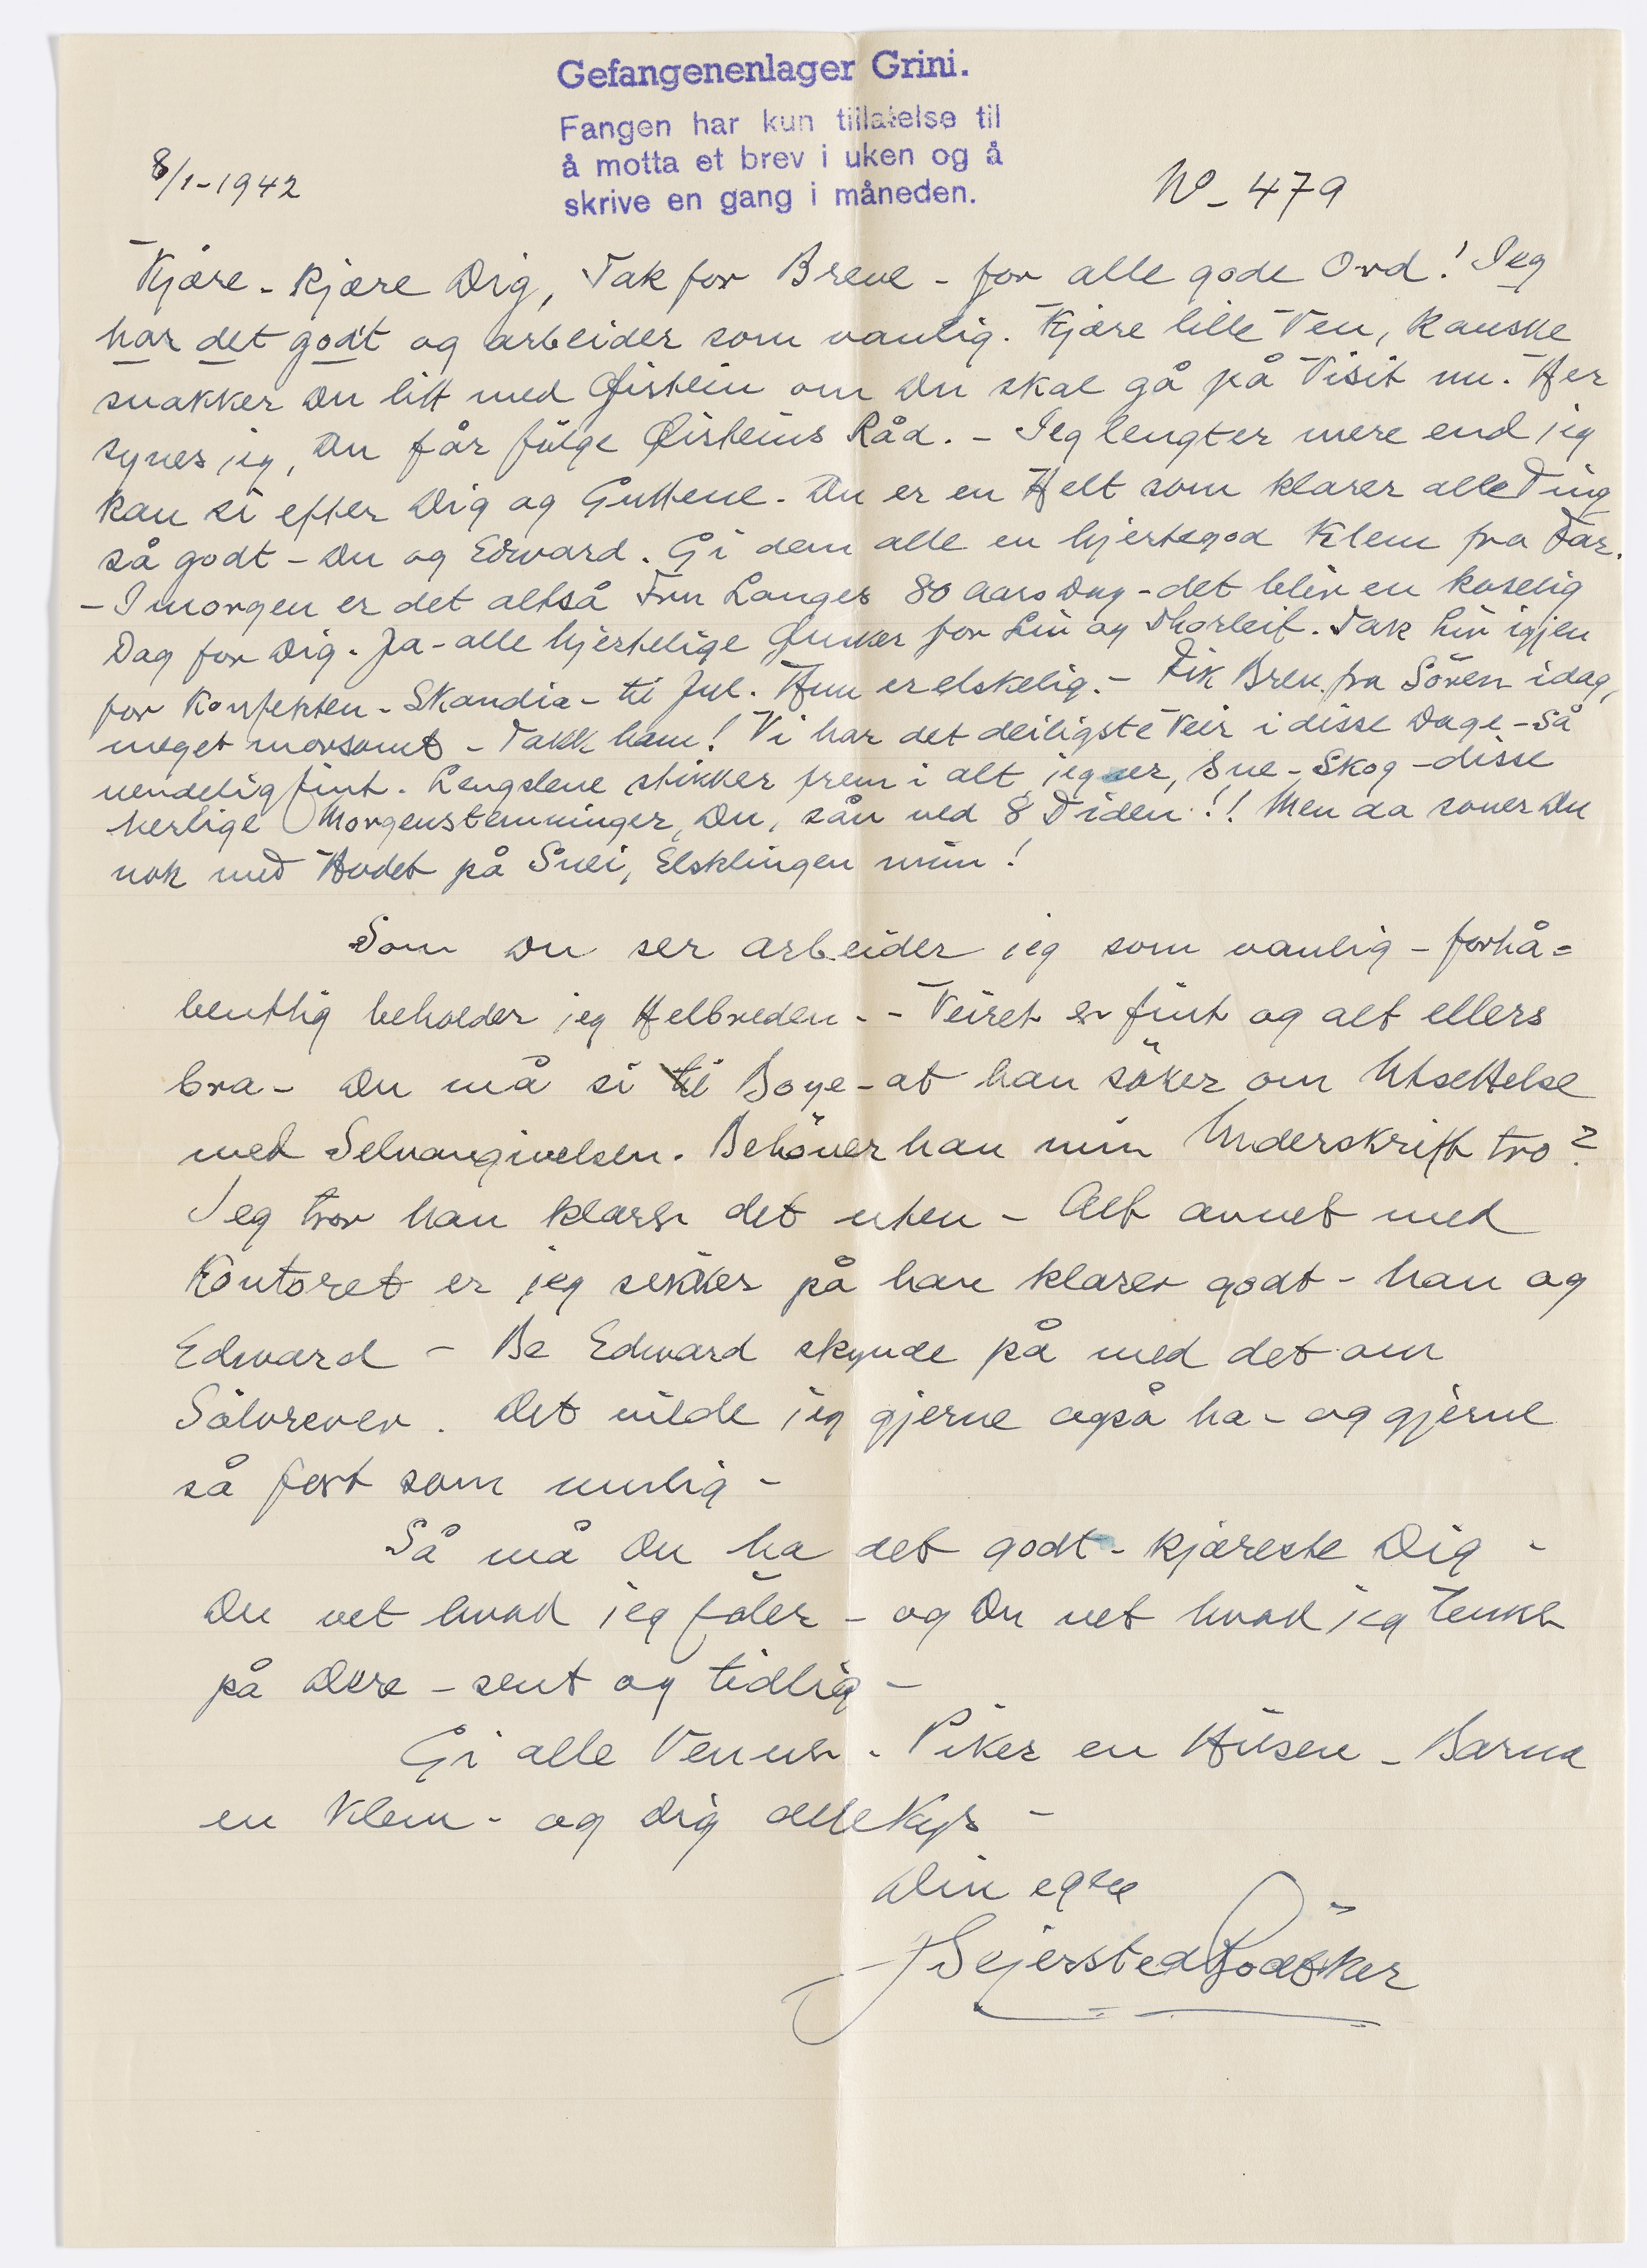 Gefangenenlager Grini.
Fangen har kun tillatelse til
å motta et brev i uken og å
skrive en gang i måneden.
8/1-1942
No - 479
Kjære - kjære Dig, Tak for Breve - for alle gode Ord! Jeg
har det godt og arbeider som vanlig. Kjære lille Ven, kanske
snakker Du litt med Øistein om Du skal gå på Visit nu. Her
synes jeg, Du får følge Øisteins Råd. - Jeg lengter mere end jeg
kan si efter Dig og Guttene. Du er en Helt som klarer alle Ting
så godt - Du og Edvard. Gi dem alle en hjertegod Klem fra Far.
- I morgen er det altså Fru Langes 80 Aars Dag - det blir en koselig
Dag for Dig. Ja - alle hjertelige Ønsker for Liv og Thorleif. Tak Liv igjen
for Konfekten - Skandia - til Jul. Hun er elskelig. - Fik Brev fra Sören idag,
meget morsomt - Takk ham! Vi har det deiligste Veir i disse Dage - Så
uendelig fint. Lengslene stikker frem i alt jeg ser, Sne - Skog - disse
herlige Morgenstemninger, Du, sån ved 8 Tiden!! Men da sover Du
nok med Hodet på Snei, Elsklingen min!
Som Du ser arbeider jeg som vanlig - forhå=
bentlig beholder jeg Helbreden. - Veiret er fint og alt ellers
bra - Du må si til Boye - at han söker om Utsettelse
med Selvangivelsen. Behöver han min Underskrift tro?
Jeg tror han klarer det uten - Alt annet med
Kontoret er jeg sikker på han klarer godt - han og
Edward - Be Edward skynde på med det om
Sölvrever. Det vilde jeg gjerne også ha - og gjerne
så fort som mulig -
Så må Du ha det godt - kjæreste Dig -
Du vet hvad jeg föler - og Du vet hvad jeg tenker
på Dere - sent og tidlig -
Gi alle Venner - Piker en Hilsen - Barna
en Klem - og Dig alle Kys -
Din egen
J Sejersted Bødtker